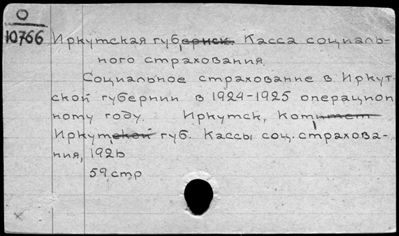 О
10766 Иркутская губернск. Касса социаль-
ного страхования.
Социальное страхование в Иркут-
ской губернии в 1924-1925 операцион
ному году. Иркутск, Комитет
Иркутской губ. Кассы соц. страхова-
ния, 1926
59 стр